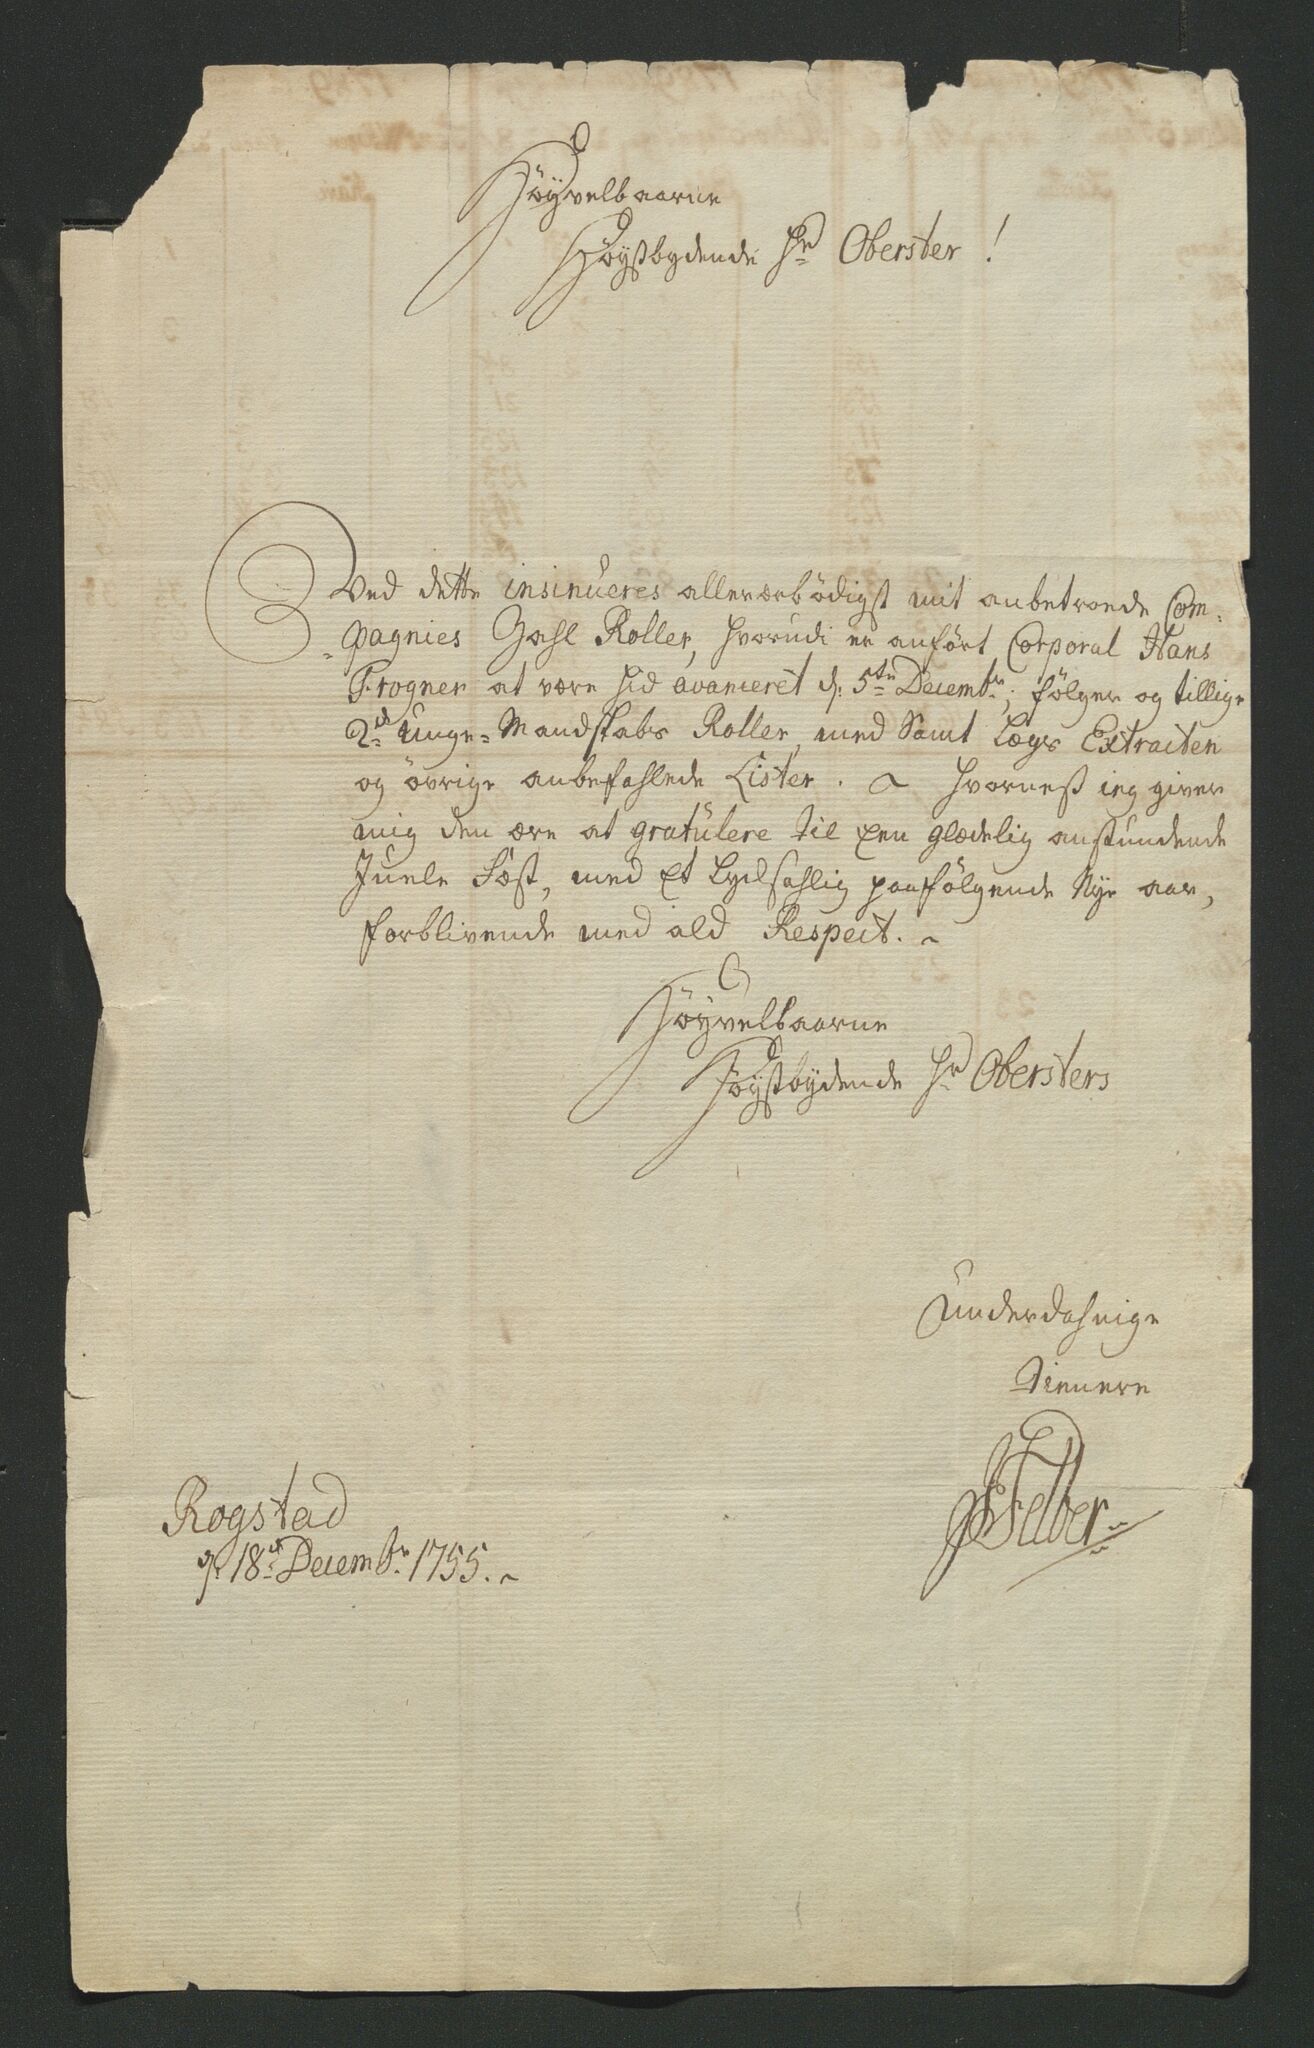 Høyvelbaarne
Høystbydende Hr Oberster!
Ved dette insinueres allerærbödigst mit anbetroede Com-
pagnies Gahl Roller, hvorudi er anført Corporal Hans
Frogner at være hid avanceret d: 5te Decembr; følger og tillige
2de Unge-Mandskabs Roller, med Samt Lægs Extracten
og övrige anbefahlede Lister. hvornest ieg giver
mig den ære at gratülere til een glædelig anstundende
Juele Fæst, med et Lycksahlig paafølgende Nye aar,
forblivende med ald Respect.
Høyvelbaarne
Høystbydende Hr Obersters
Underdahnige
tienere
Felber
Rogstad
d: 18de Decembr. 1755.